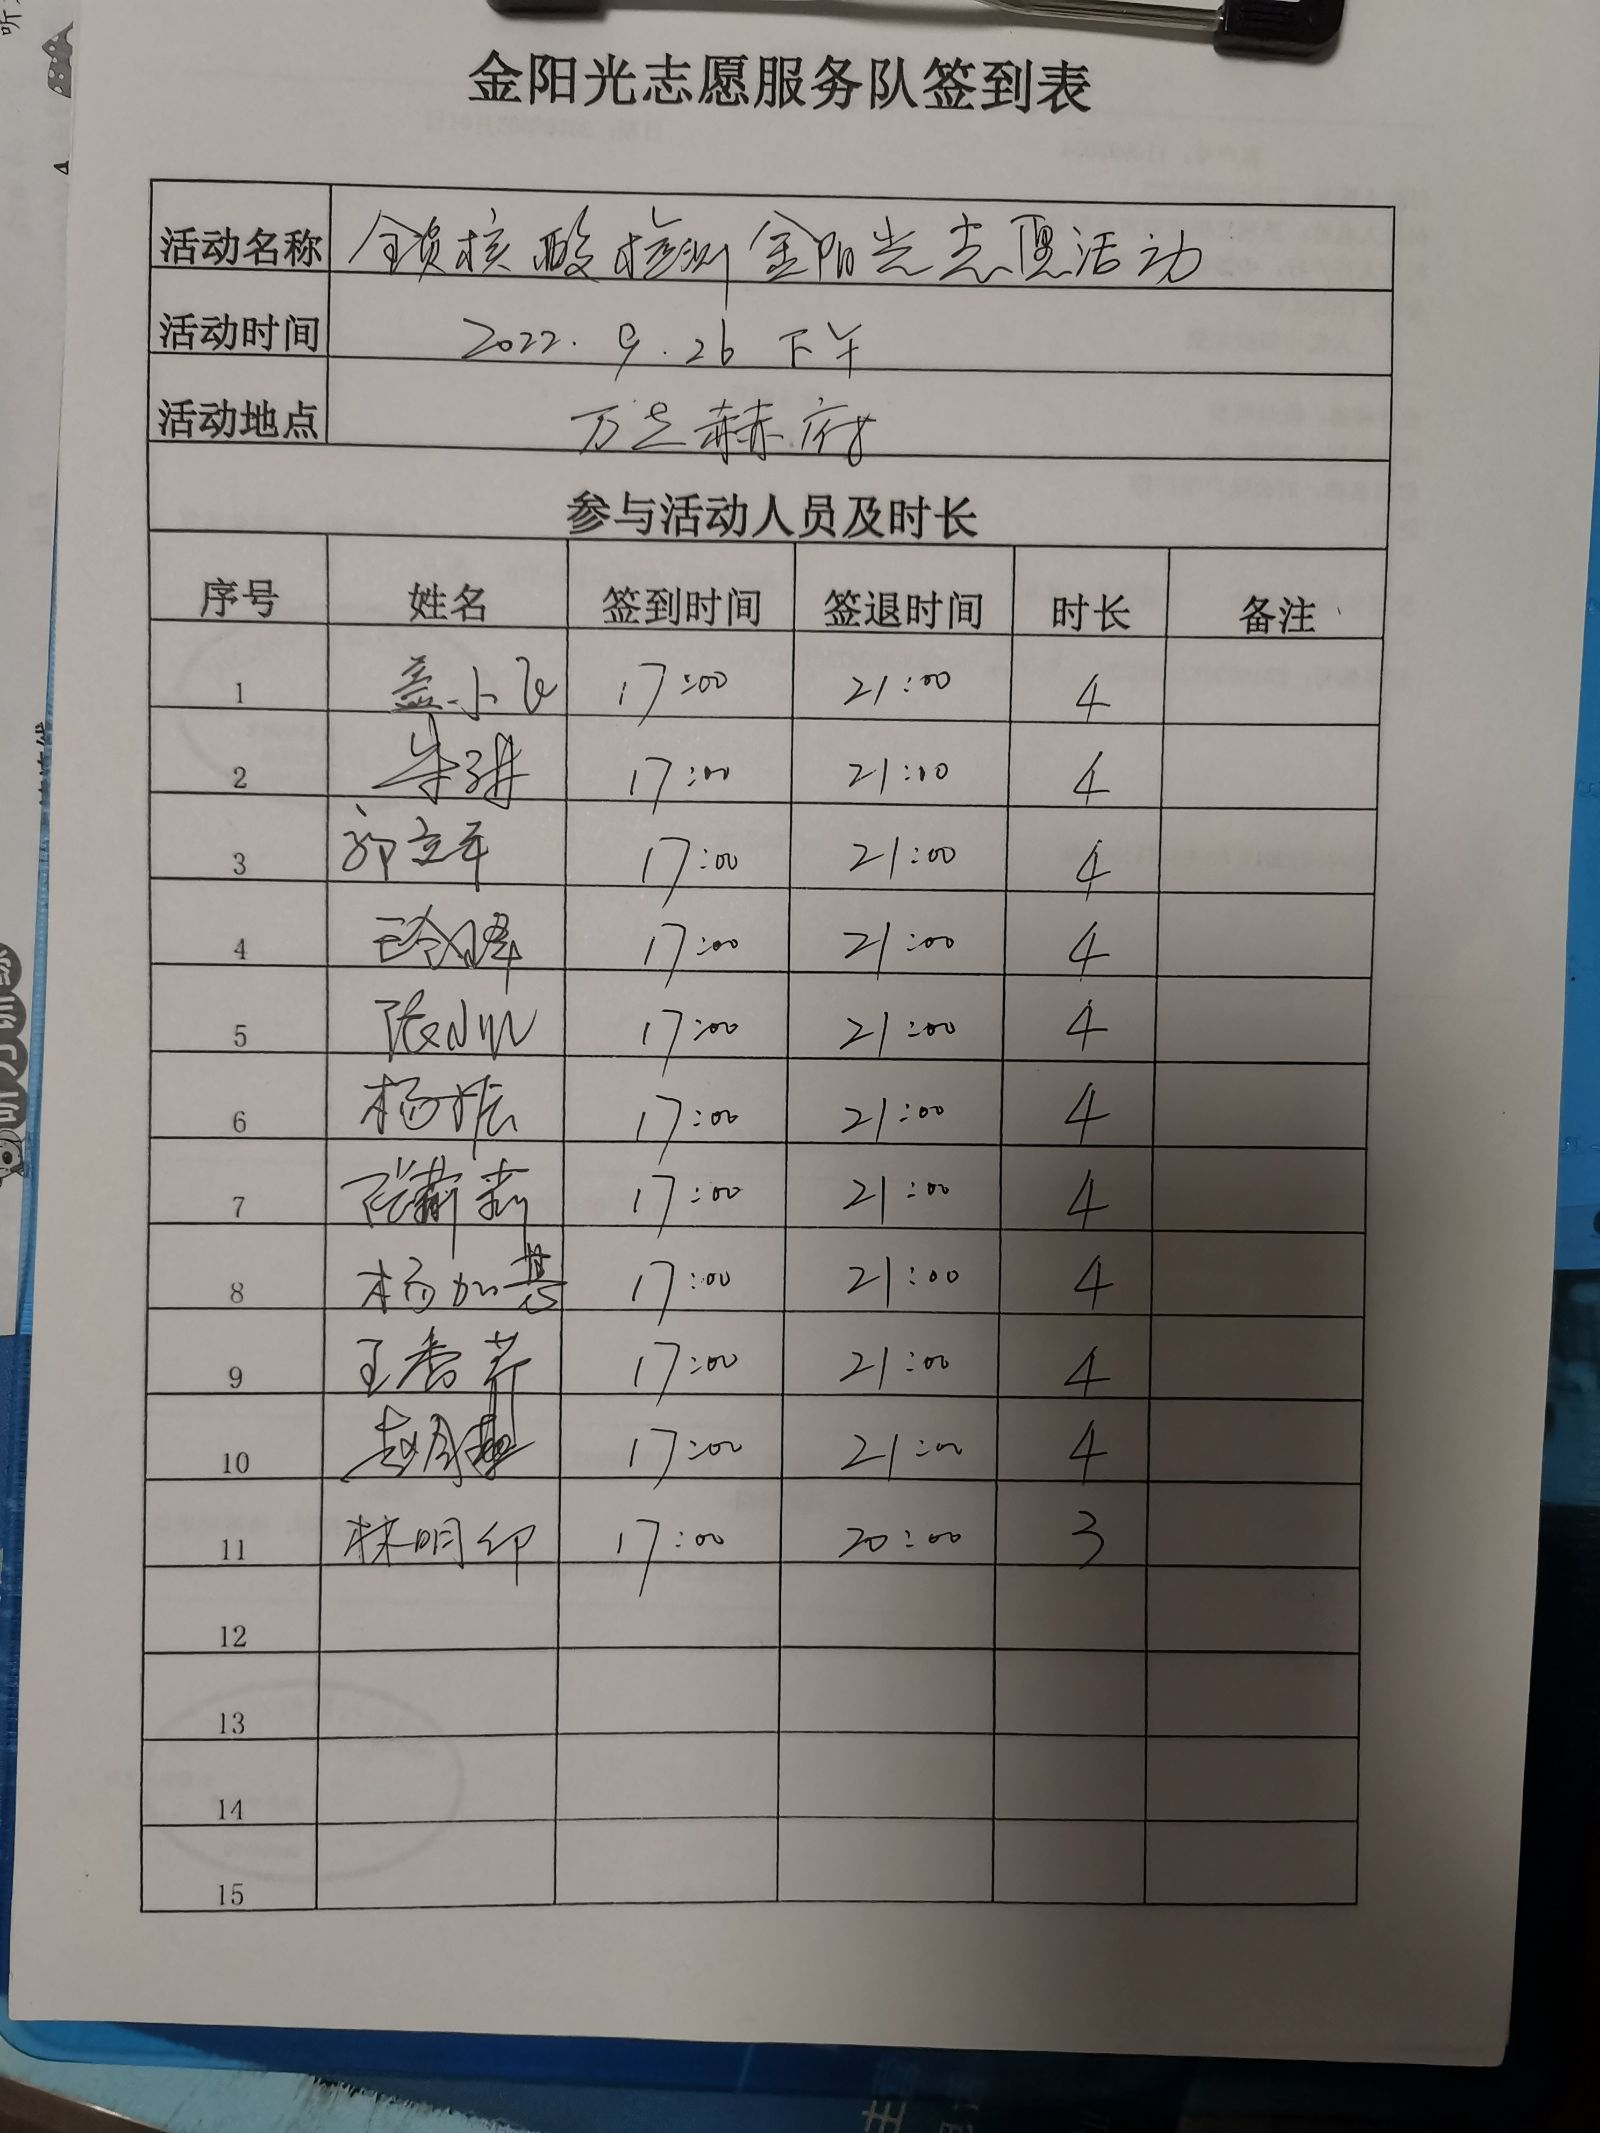 金阳光志愿服务队签到表
活动名称 全员核酸检测金阳光志愿活动
活动时间 2022.9.26 下午
活动地点 万芝赫府
参与活动人员及时长
序号 姓名 签到时间 签退时间 时长 备注
1 盖小飞 17:00 21:00 4
2 17:00 21:00 4
3 17:00 21:00 4
4 17:00 21:00 4
5 17:00 21:00 4
6 杨振 17:00 21:00 4
7 17:00 21:00 4
8 杨加慧 17:00 21:00 4
9 王香芹 17:00 21:00 4
10 17:00 21:00 4
11 林明印 17:00 20:00 3
12
13
14
15